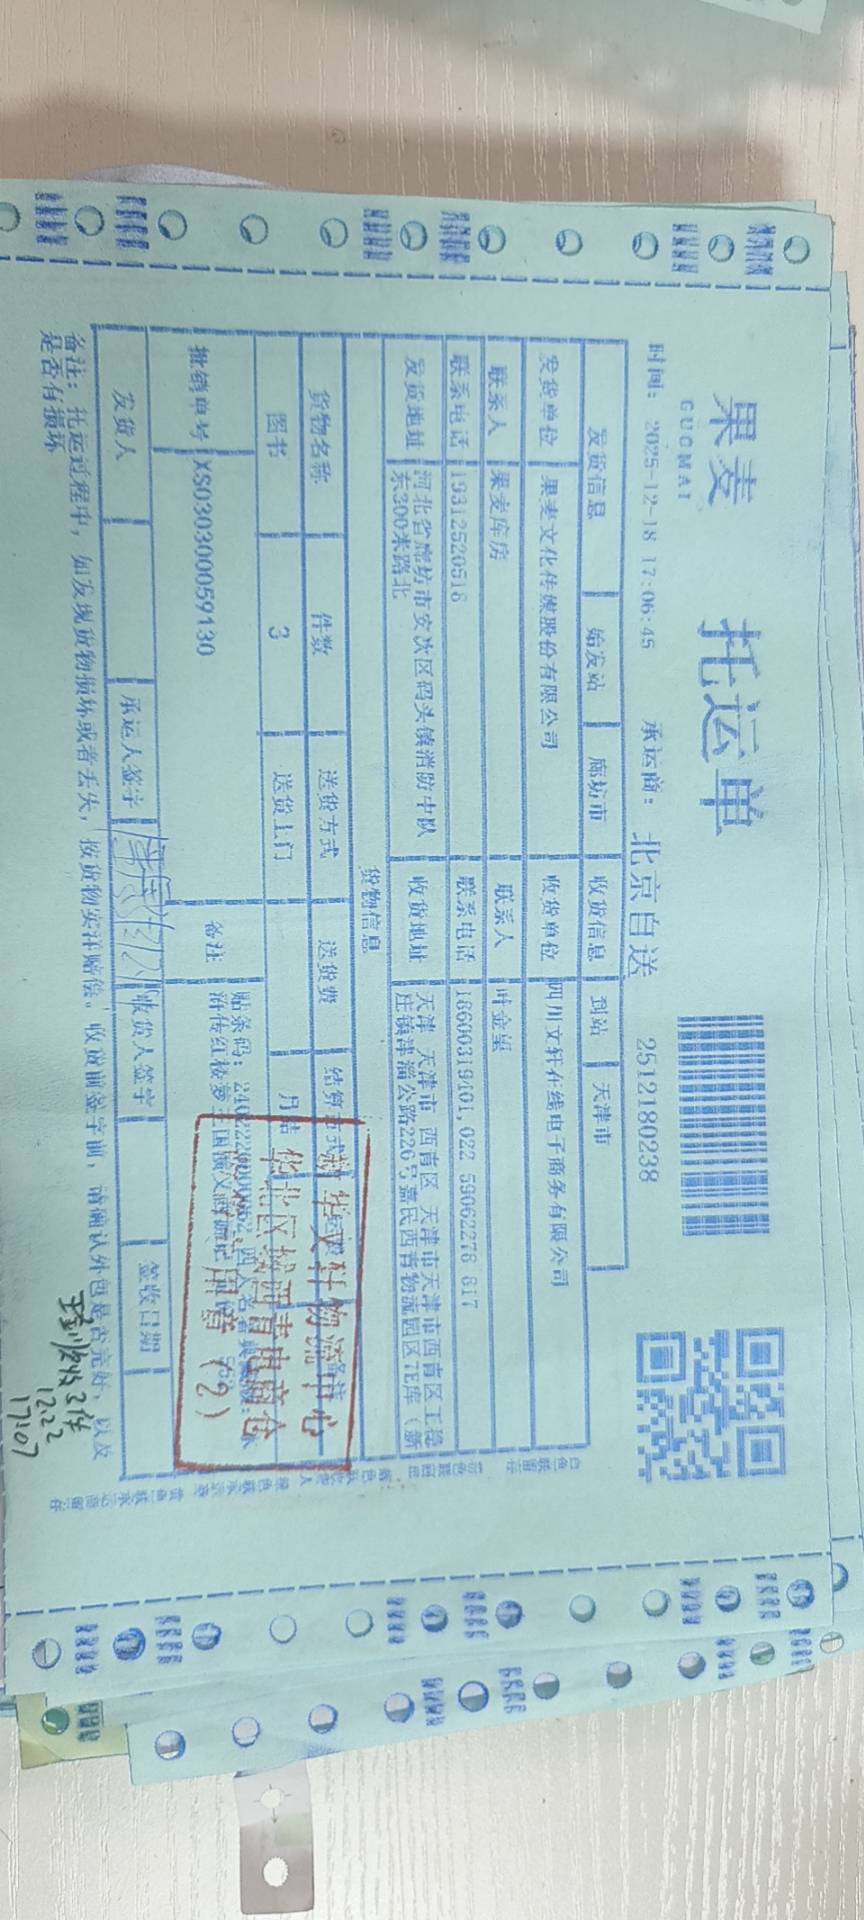 果麦
GUOMAI
托运单
时间： 2025-12-18 17:06:45 承运商： 北京自送 2512180238
发货信息 始发站 廊坊市 收货信息 到站 天津市
发货单位 果麦文化传媒股份有限公司 收货单位 四川文轩在线电子商务有限公司
联系人 果麦库房 联系人 叶金星
联系电话 19312520518 联系电话 18600319401,022 59062276 617
发货地址 河北省廊坊市安次区码头镇消防中队东300米路北 收货地址 天津 天津市 西青区 天津市天津市西青区王稳庄镇津淄公路226号嘉民西青物流园区7E库（新
货物信息
货物名称 件数 送货方式 送货费 结算方式
图书 3 送货上门 月结
批销单号 XS030300059130 备注 贴条码：
新华文轩物流中心
华北区域西青电商仓
用章（2）
发货人 承运人签字 收货人签字 签收日期
备注：托运过程中，如发现货物损坏或者丢失，按货物实洋赔偿。收货前签字前，请确认外包是否完好，以及
是否有损坏
3件
12.22
17:07